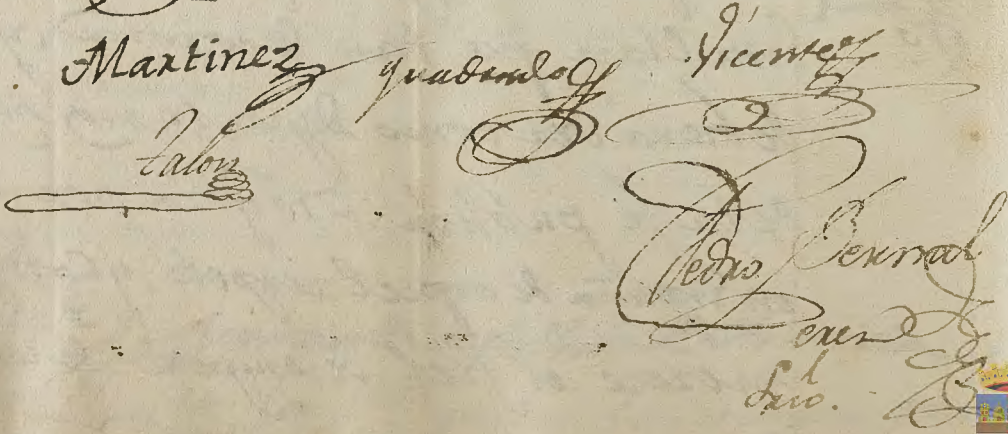 Martinez Quadrado Vicente
Talon
Pedro Bernal
Srio.